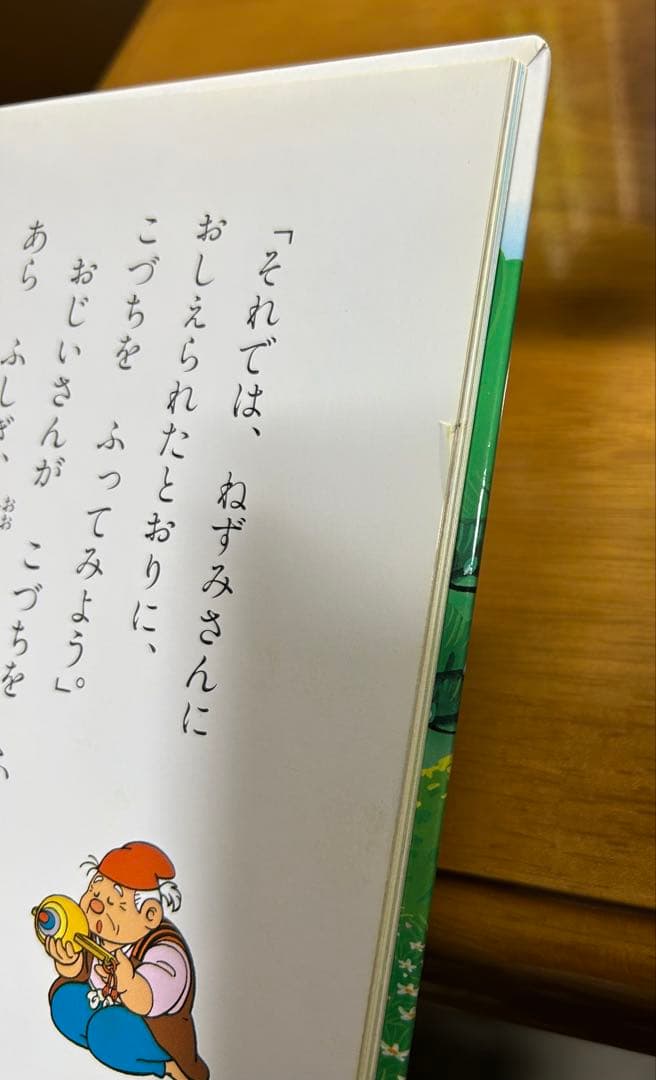 「それでは、　ねずみさんに
おしえられたとおりに、
こづちを　ふってみよう。」
おじいさんが　こづちを　ふ
あら　ふしぎ、　おお